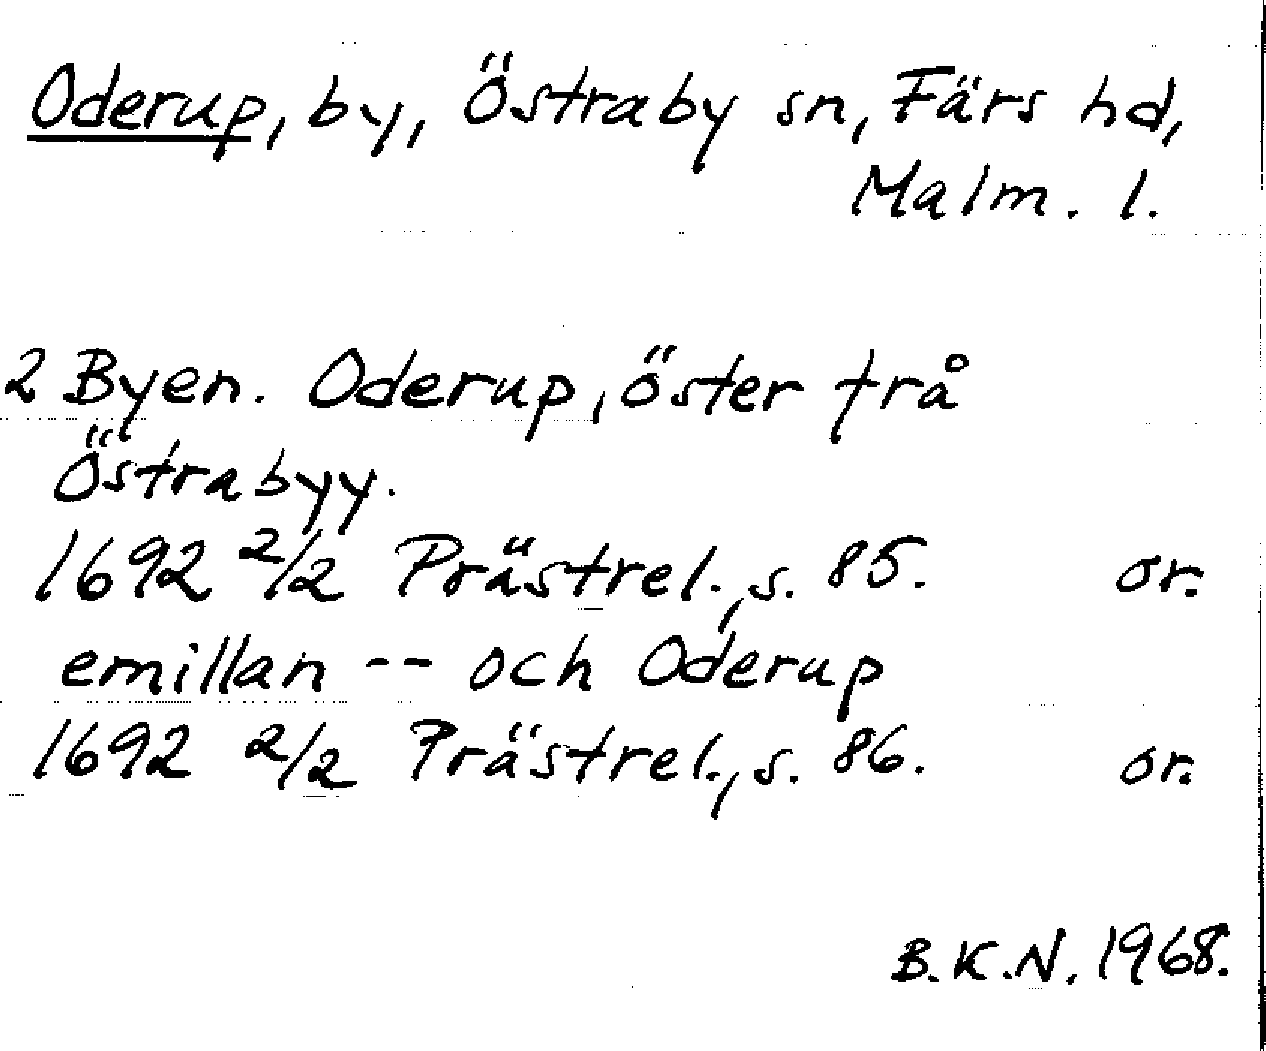 Oderup, by, Östraby sn, Färs hd,
Malm. l.
2 Byen. Oderup, öster frå
Östrabyy.
1692 2/2 Prästrel., s. 85. or.
emillan -- och Oderup
1692 2/2 Prästrel., s. 86. or.
B.K.N. 1968.